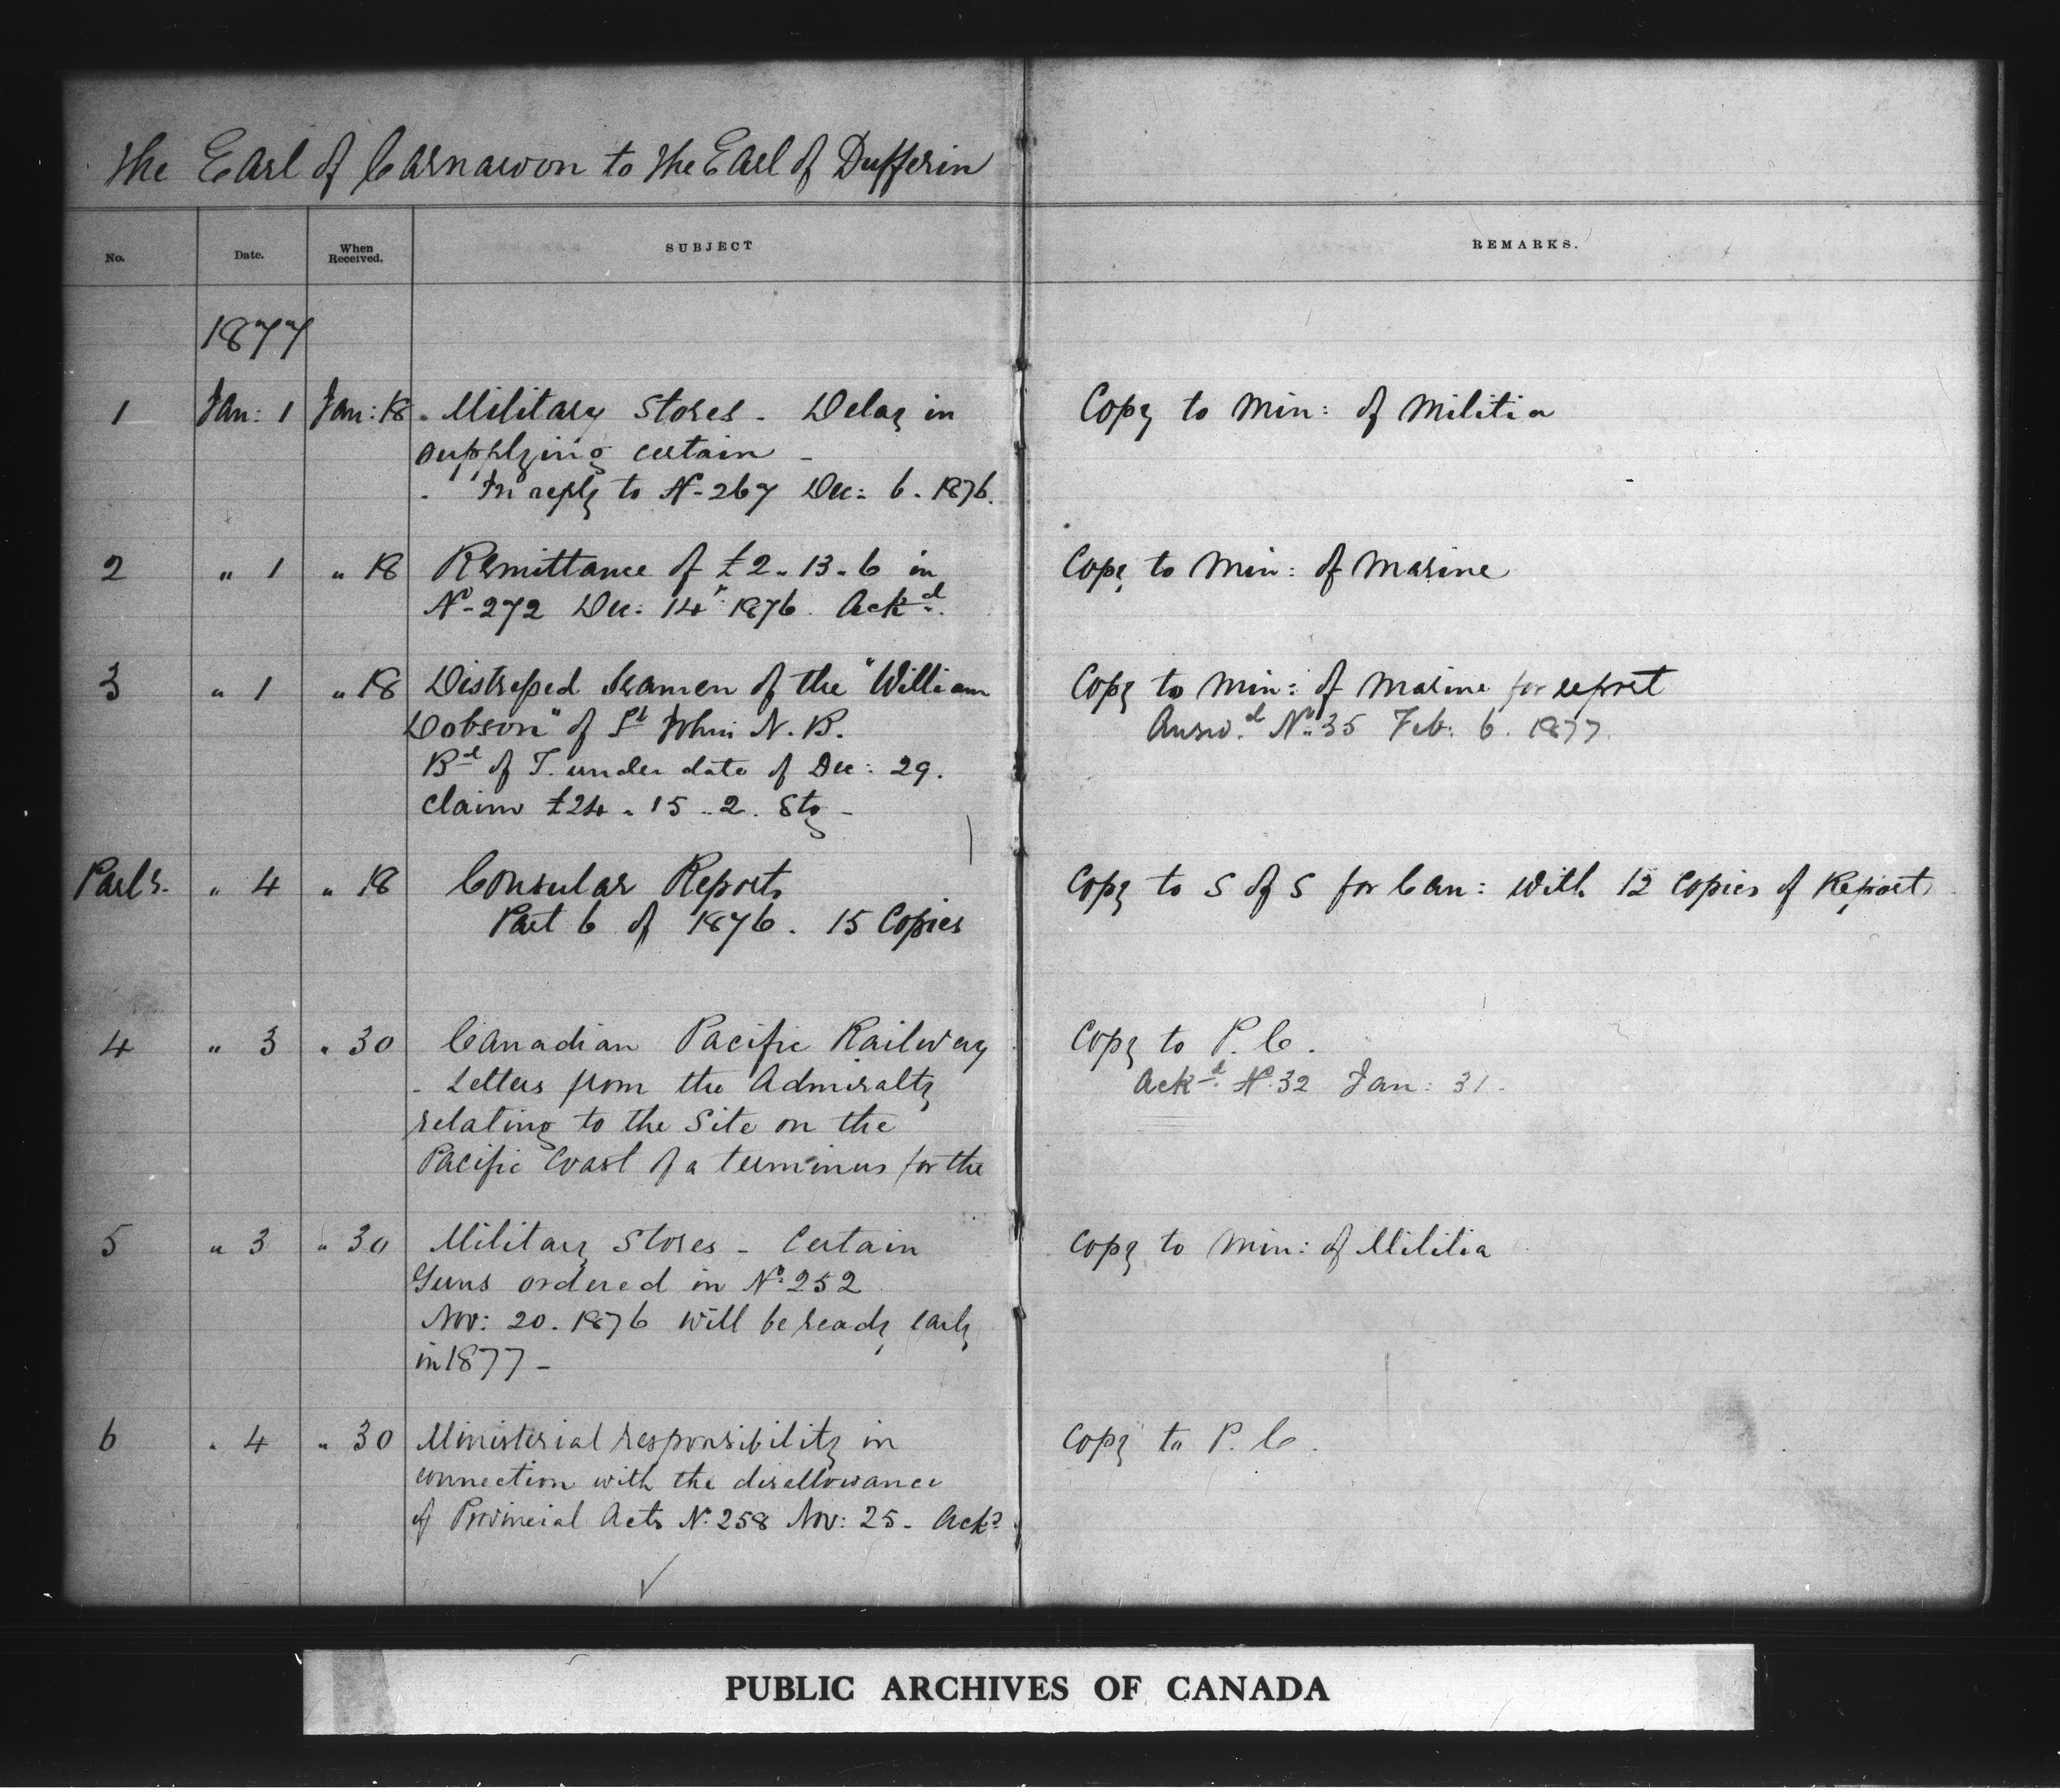 The Earl of Carnarvon to The Earl of Dufferin
No. Date. When Received. SUBJECT REMARKS.
1877
1 Jan: 1 Jan: 18 . Military Stores - Delay in Copy to Min: of Militia
supplying certain -
. In reply to No. 267 Dec: 6. 1876.
2 " 1 " 18 Remittance of £2.. 13.. 6 in Copy to Min: of Marine
No. 272 Dec: 14 1876. Ackd.
3 " 1 " 18 Distressed Seamen of the "William Copy to Min: of Marine for report
Dobson" of St John N. B. Answd. No. 35 Feb. 6. 1877.
Bd of T. under date of Dec: 29.
Claim £24.. 15.. 2. Stg -
" 4 " 18 Consular Reports Copy to S of S for Can: with 12 Copies of Report
Part 6 of 1876. 15 Copies
4 " 3 " 30 Canadian Pacific Railway Copy to P. C.
- Letters from the Admiralty Ackd. No. 32 Jan: 31.
relating to the Site on the
Pacific Coast of a terminus for the
5 " 3 " 30 Military Stores - Certain Copy to Min: of Militia
Guns ordered in No. 252
Nov: 20. 1876 will be ready early
in 1877 -
6 " 4 " 30 Ministerial responsibility in Copy to P. C.
connection with the disallowance
of Provincial Acts No. 258 Nov: 25. Ackd.
PUBLIC ARCHIVES OF CANADA